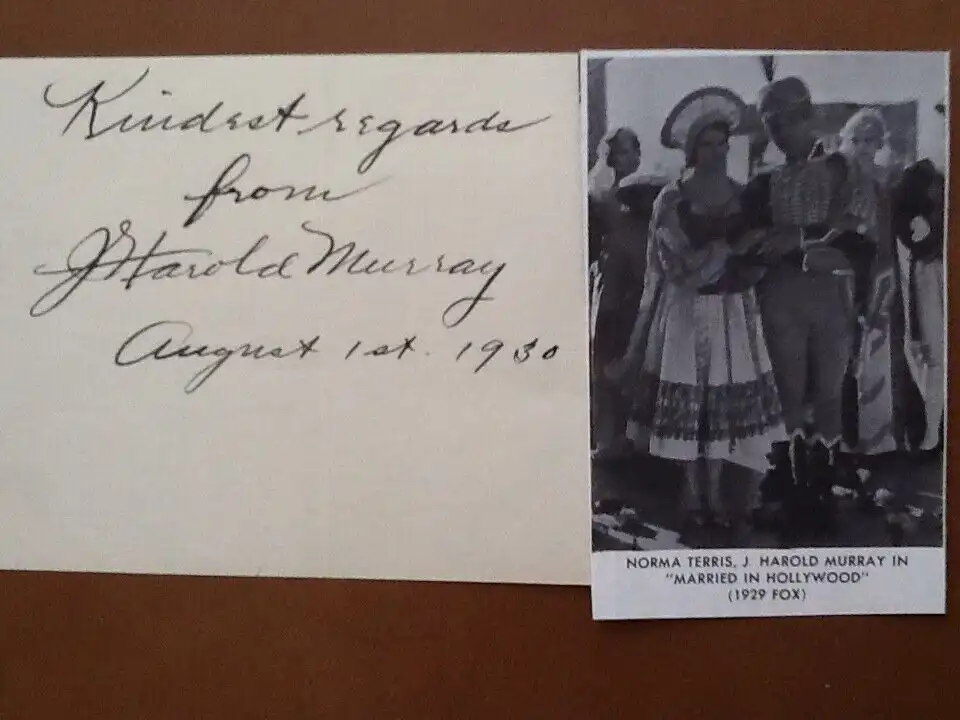 Kindest regards
from
J Harold Murray
August 1st. 1930
NORMA TERRIS, J. HAROLD MURRAY IN
"MARRIED IN HOLLYWOOD"
(1929 FOX)